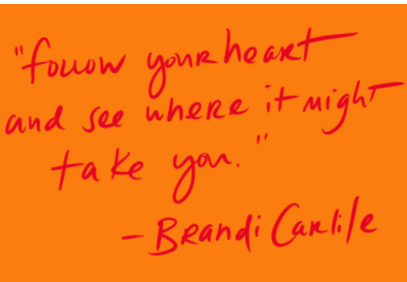 "follow your heart
and see where it might
take you."
-Brandi Carlile